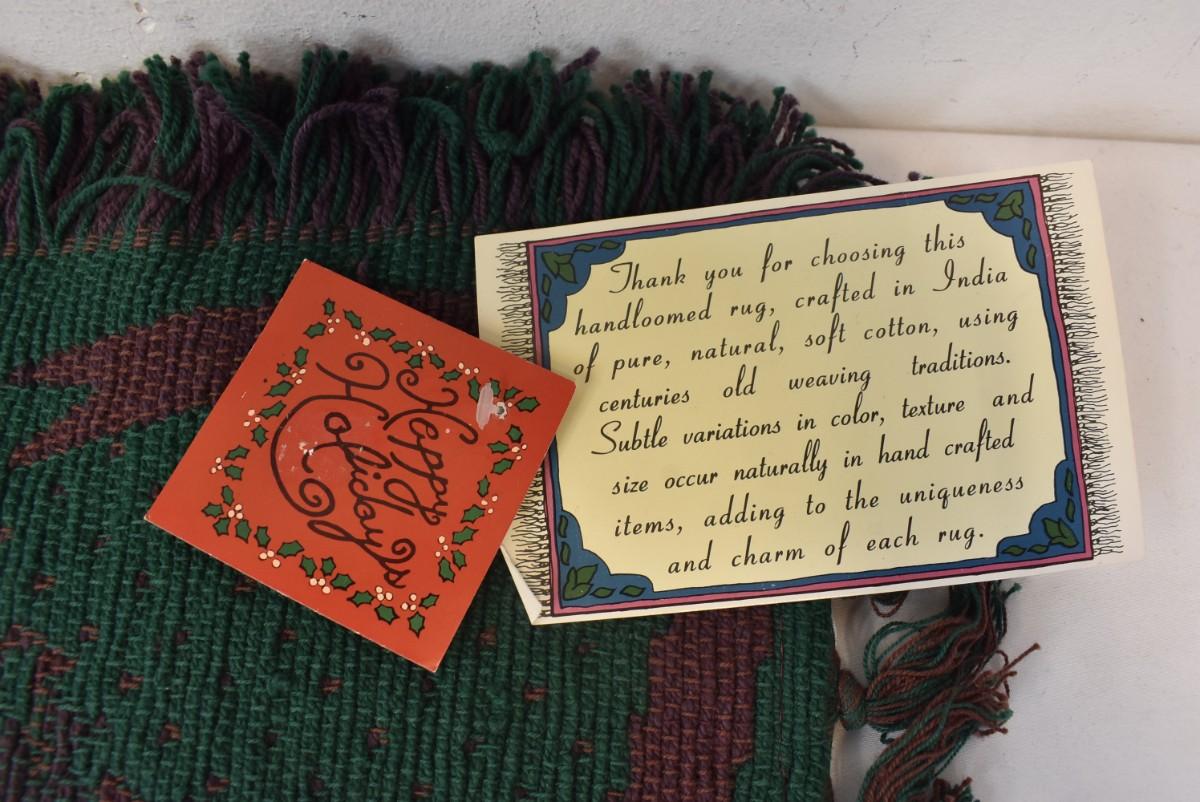 Happy
Holidays
Thank you for choosing this
handloomed rug, crafted in India
of pure, natural, soft cotton, using
centuries old weaving traditions.
Subtle variations in color, texture and
size occur naturally in hand crafted
items, adding to the uniqueness
and charm of each rug.